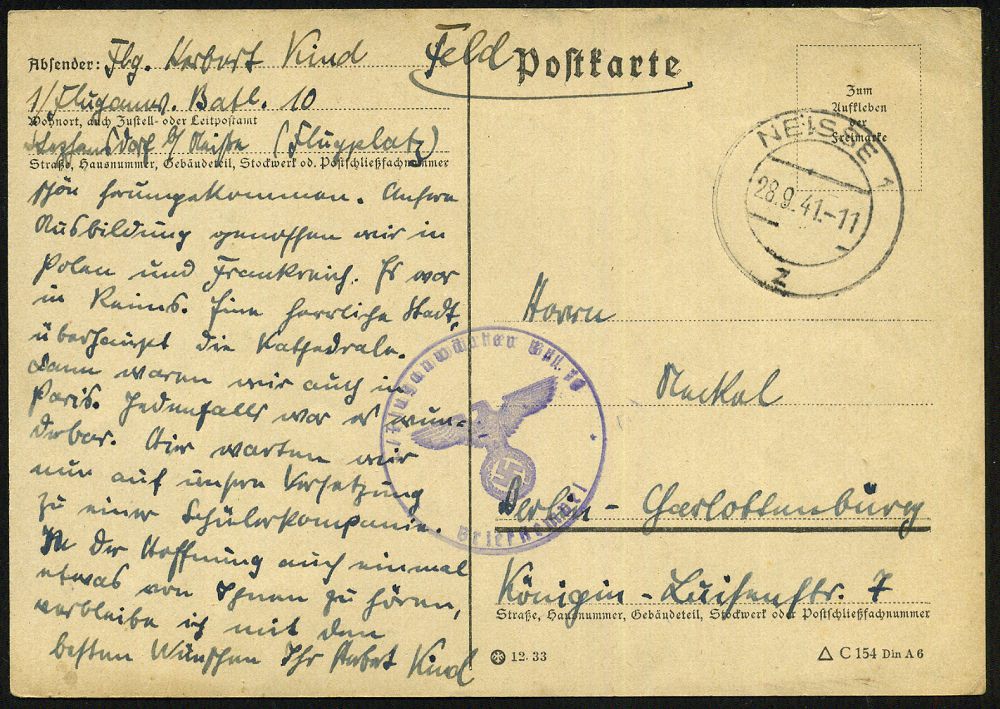 Absender: Flg. Herbert Kind
1/Fluganw. Batl. 10
Wohnort, auch Zustell- oder Leitpostamt
Stephansdorf b/ Neiße (Flugplatz)
Straße, Hausnummer, Gebäudeteil, Stockwerk od. Postschließfachnummer
schön herumgekommen. Unsere
Ausbildung genossen wir in
Polen und Frankreich. Es war
in Reims. Eine herrliche Stadt,
überhaupt die Kathedrale.
Dann waren wir auch in
Paris. Jedenfalls war es wun-
derbar. Hier warten wir
nur auf unsere Versetzung
zu einer Schülerkompanie.
In der Hoffnung auch einmal
etwas von Ihnen zu hören,
verbleibe ich mit den
besten Wünschen Ihr Herbert Kind
Feld Postkarte
Zum
Aufkleben
der
Freimarke
NEISSE 1
28.9.41.-11
z
Herrn
Neckel
Berlin - Charlottenburg
Königin - Luisenstr. 7
Straße, Hausnummer, Gebäudeteil, Stockwerk oder Postschließfachnummer
Fluganwärter Btl. 10
Briefstempel
12. 33
C 154 Din A 6